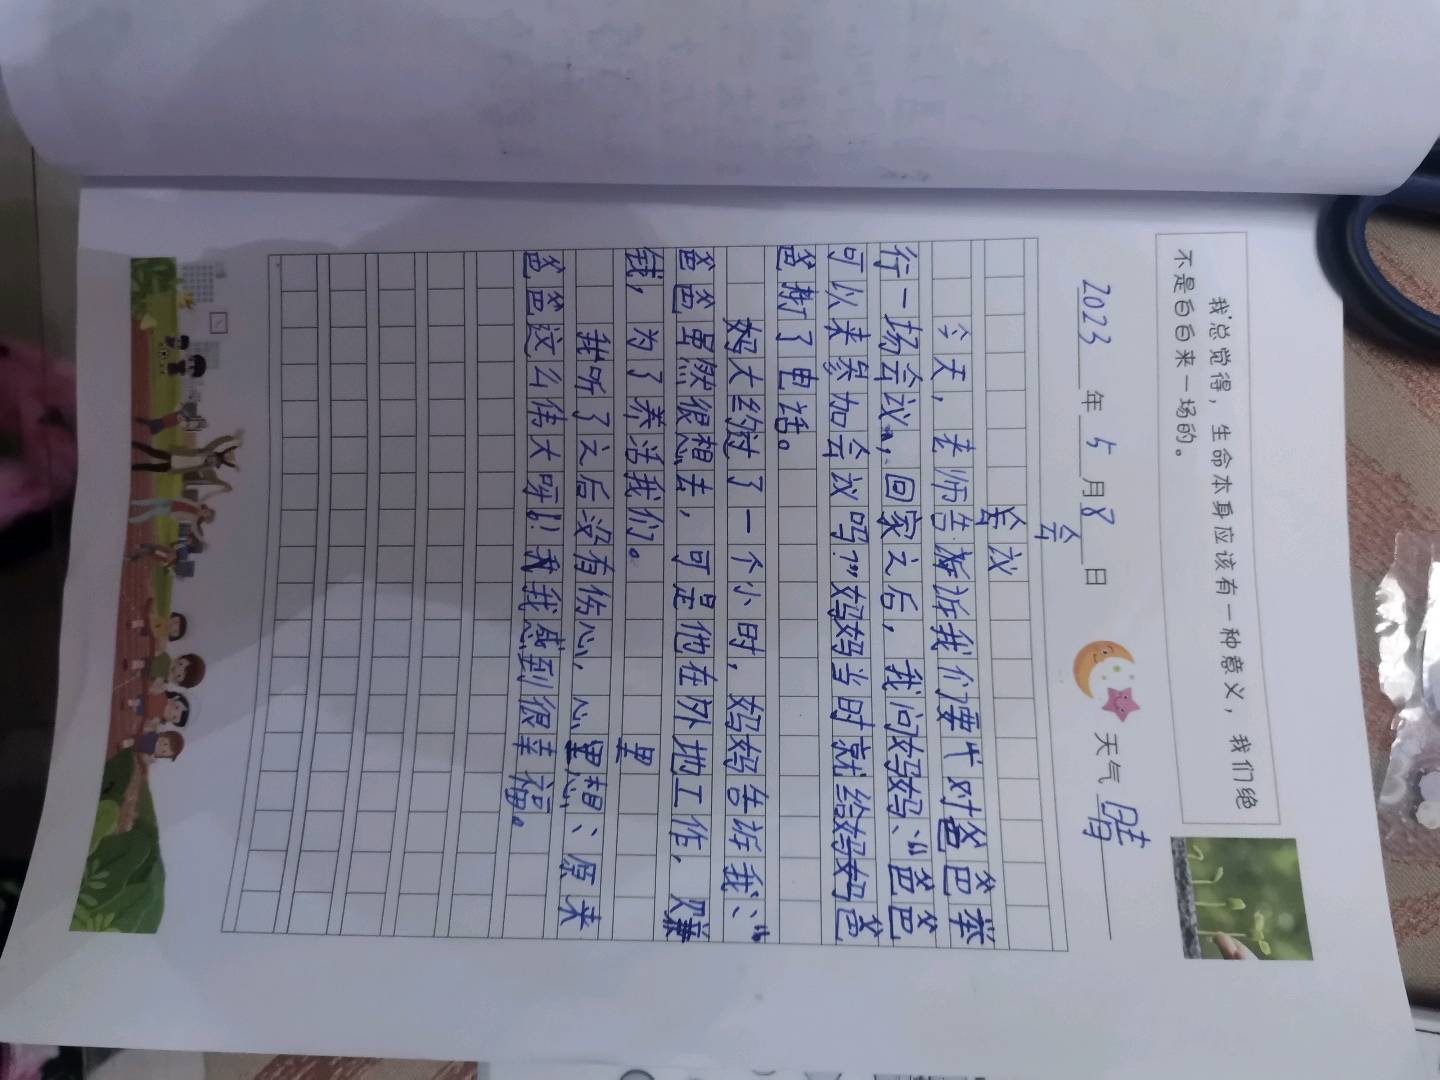 我总觉得，生命本身应该有一种意义，我们绝
不是白白来一场的。
2023年5月8日 天气 晴
会
会议
今天，老师告诉我们要代对爸爸举
行一场会议，回家之后，我问妈妈：“爸爸
可以来参加会议吗？”妈妈当时就给妈妈爸
爸打了电话。
妈大约过了一个小时，妈妈告诉我：“
爸爸虽然很想去，可是他在外地工作，赚
钱，为了养活我们。
里
我听了之后没有伤心，心里想：原来
爸爸这么伟大呀！我我感到很幸福。